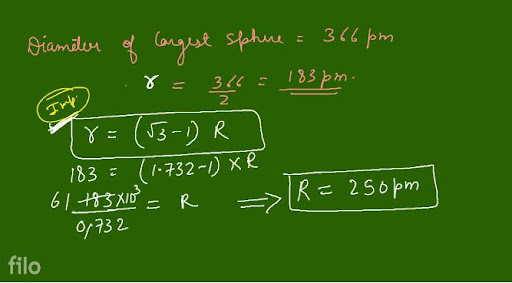 Diameter of largest sphere = 366 pm
r = 366/2 = 183 pm.
Imp.
r = (√3-1) R
183 = (1.732-1) × R
61 183×10³/0,732 = R ⇒ R = 250pm
filo